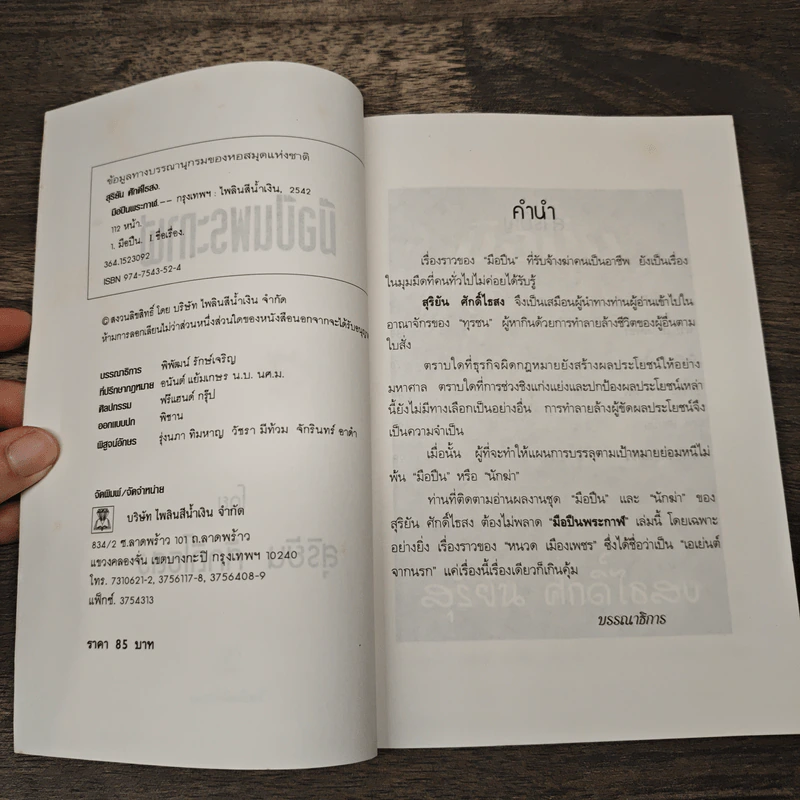 ข้อมูลทางบรรณานุกรมของหอสมุดแห่งชาติ
สุริยัน ศักดิ์ไธสง.
มือปืนพระกาฬ.-- กรุงเทพฯ : ไพลินสีน้ำเงิน, 2542
112 หน้า.
1. มือปืน. I. ชื่อเรื่อง.
364.1523092
ISBN 974-7543-52-4
© สงวนลิขสิทธิ์ โดย บริษัท ไพลินสีน้ำเงิน จำกัด
ห้ามการลอกเลียนไม่ว่าส่วนหนึ่งส่วนใดของหนังสือนอกจากจะได้รับอนุญาต
บรรณาธิการ พิพัฒน์ รักษ์เจริญ
ที่ปรึกษากฎหมาย อนันต์ แย้มเกษร น.บ. นศ.ม.
ศิลปกรรม ฟรีแฮนด์ กรุ๊ป
ออกแบบปก พิชาน
พิสูจน์อักษร รุ่งนภา ทิมหาญ วัชรา มีท้วม จักรินทร์ อาดำ
จัดพิมพ์/จัดจำหน่าย
บริษัท ไพลินสีน้ำเงิน จำกัด
834/2 ซ.ลาดพร้าว 101 ถ.ลาดพร้าว
แขวงคลองจั่น เขตบางกะปิ กรุงเทพฯ 10240
โทร. 7310621-2, 3756117-8, 3756408-9
แฟ็กซ์. 3754313
ราคา 85 บาท
คำนำ
เรื่องราวของ "มือปืน" ที่รับจ้างฆ่าคนเป็นอาชีพ ยังเป็นเรื่อง
ในมุมมืดที่คนทั่วไปไม่ค่อยได้รับรู้
สุริยัน ศักดิ์ไธสง จึงเป็นเสมือนผู้นำทางท่านผู้อ่านเข้าไปใน
อาณาจักรของ "ทุรชน" ผู้หากินด้วยการทำลายล้างชีวิตของผู้อื่นตาม
ใบสั่ง
ตราบใดที่ธุรกิจผิดกฎหมายยังสร้างผลประโยชน์ให้อย่าง
มหาศาล ตราบใดที่การช่วงชิงแก่งแย่งและปกป้องผลประโยชน์เหล่า
นี้ยังไม่มีทางเลือกเป็นอย่างอื่น การทำลายล้างผู้ขัดผลประโยชน์จึง
เป็นความจำเป็น
เมื่อนั้น ผู้ที่จะทำให้แผนการบรรลุตามเป้าหมายย่อมหนีไม่
พ้น "มือปืน" หรือ "นักฆ่า"
ท่านที่ติดตามอ่านผลงานชุด "มือปืน" และ "นักฆ่า" ของ
สุริยัน ศักดิ์ไธสง ต้องไม่พลาด "มือปืนพระกาฬ" เล่มนี้ โดยเฉพาะ
อย่างยิ่ง เรื่องราวของ "หนวด เมืองเพชร" ซึ่งได้ชื่อว่าเป็น "เอเย่นต์
จากนรก" แค่เรื่องนี้เรื่องเดียวก็เกินคุ้ม
สุริยัน ศักดิ์ไธสง
บรรณาธิการ